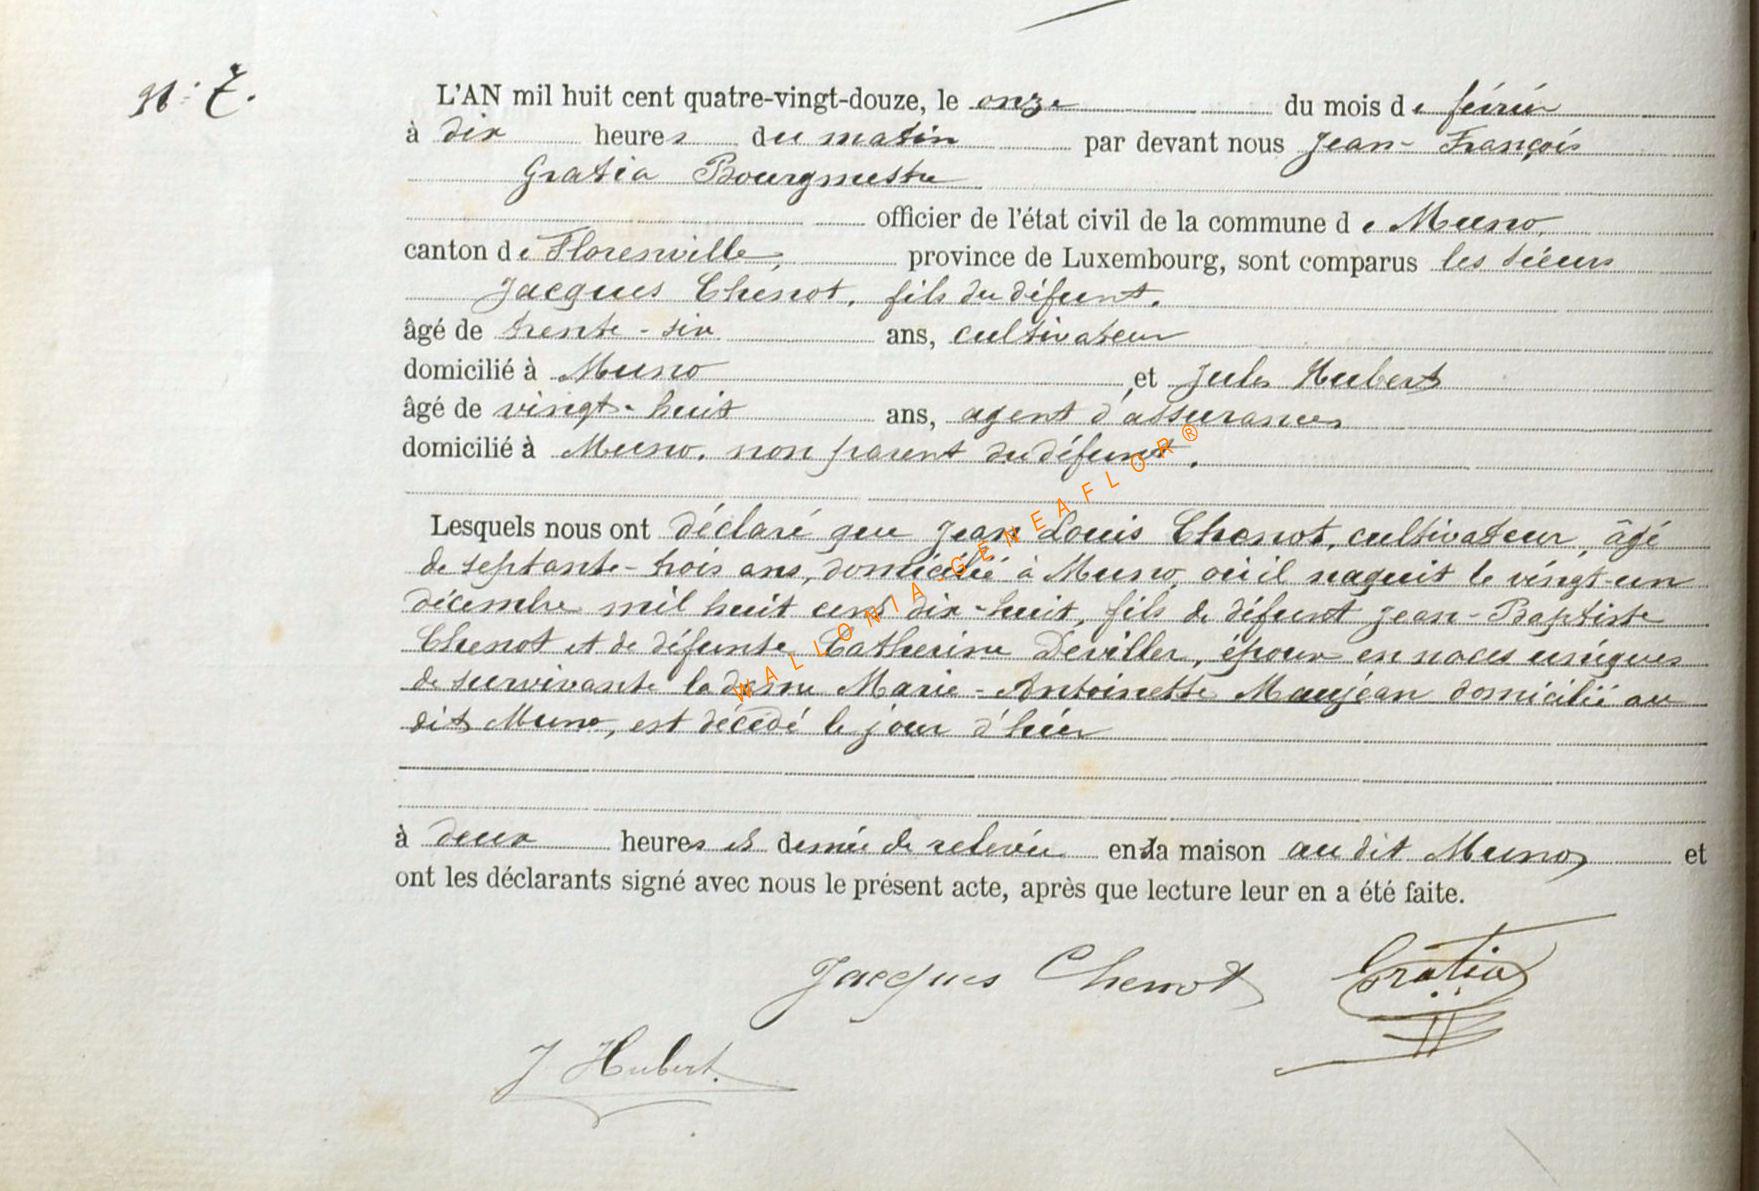 N° 7.
L'AN mil huit cent quatre-vingt-douze, le onze du mois de février
à dix heures du matin par devant nous Jean-François
Gratia Bourgmestre
officier de l'état civil de la commune de Muno,
canton de Florenville, province de Luxembourg, sont comparus les sieurs
Jacques Chenot, fils du défunt,
âgé de trente-six ans, cultivateur
domicilié à Muno, et Jules Hubert
âgé de vingt-huit ans, agent d'assurances
domicilié à Muno, non parent du défunt,
Lesquels nous ont déclaré que Jean Louis Chenot, cultivateur, âgé
de septante-trois ans, domicilié à Muno, où il naquit le vingt-un
décembre mil huit cent dix-huit, fils de défunt Jean-Baptiste
Chenot et de défunte Catherine Deviller, époux en noces uniques
de survivante la dame Marie-Antoinette Maujean domicilié au
dit Muno, est décédé le jour d'hier
à deux heures et demie de relevée en sa maison au dit Muno, et
ont les déclarants signé avec nous le présent acte, après que lecture leur en a été faite.
Jacques Chenot Gratia
J Hubert.
WALLONIA GÉNÉAFLOR®